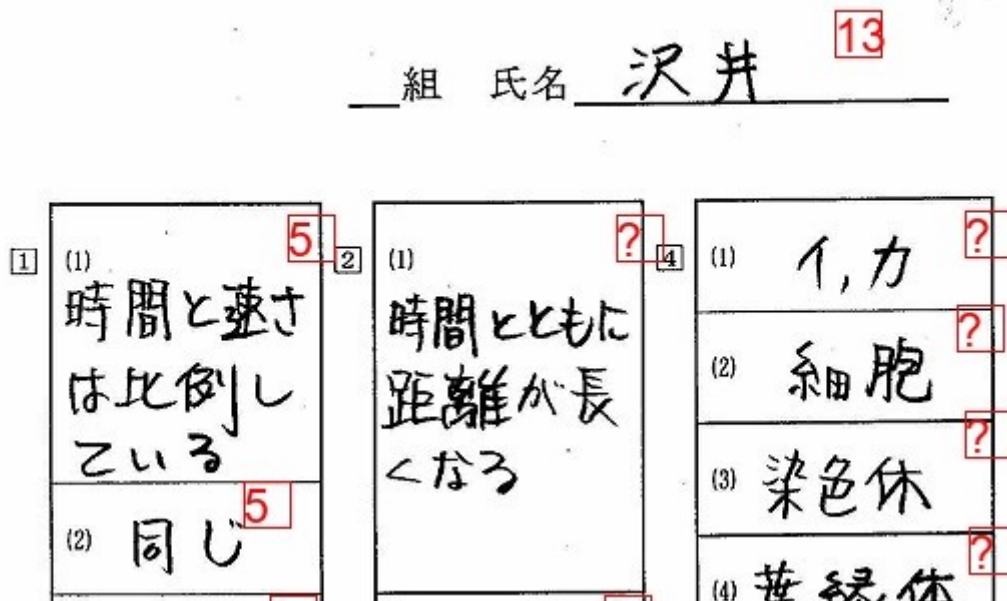 13
組 氏名 沢井
1 (1) 5
時間と速さ
は比例し
ている
(2) 同じ 5
2 (1) ?
時間とともに
距離が長
くなる
4 (1) イ,カ ?
(2) 細胞 ?
(3) 染色休 ?
(4) 葉緑休 ?